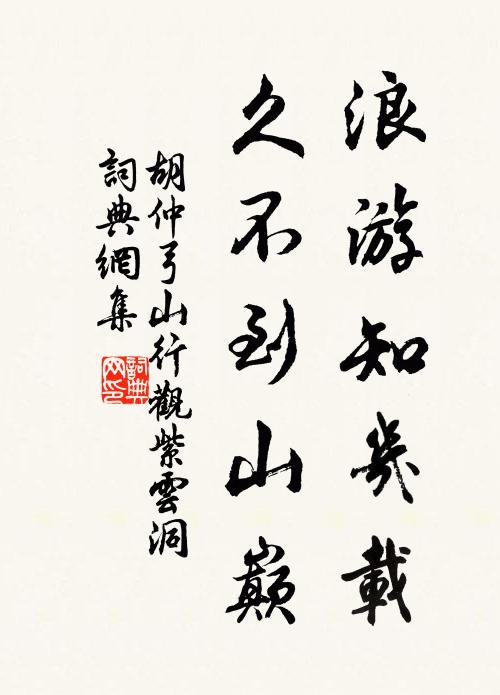 浪游知幾載
久不到山巔
胡仲弓山行觀紫雲洞
詞典網集
詞典
网印